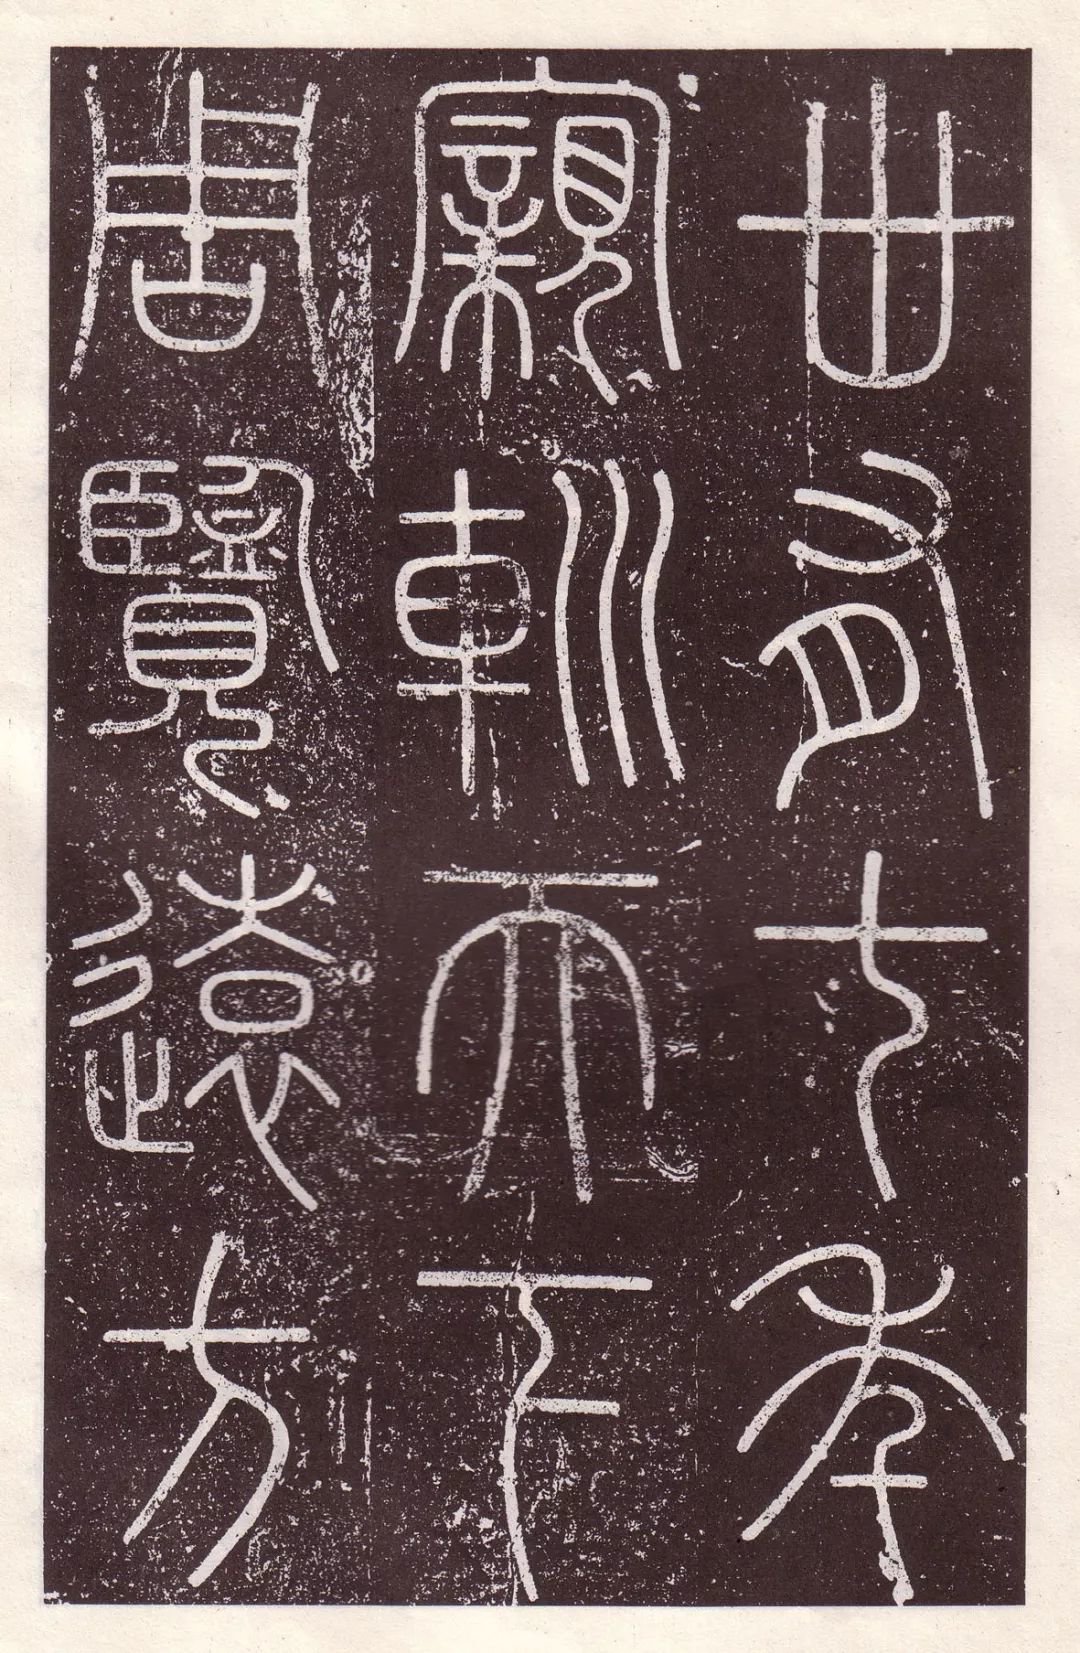 卅有七年
寴𨊠天下
周覽遠方